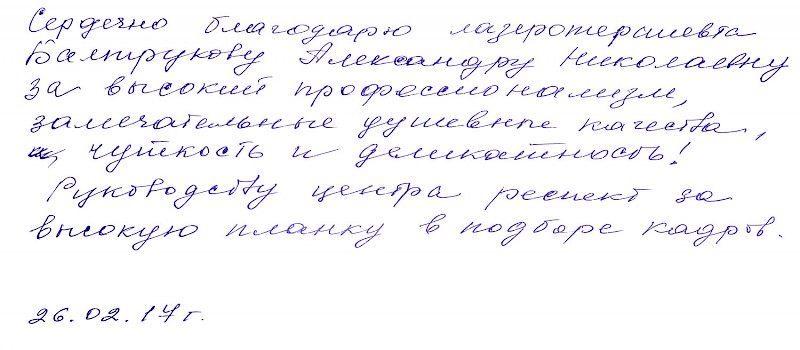 Сердечно благодарю лазеротерапевта
Балтрукову Александру Николаевну
за высокий профессионализм,
замечательные душевные качества,
чуткость и деликатность!
Руководству центра респект за
высокую планку в подборе кадров.
26.02.17г.